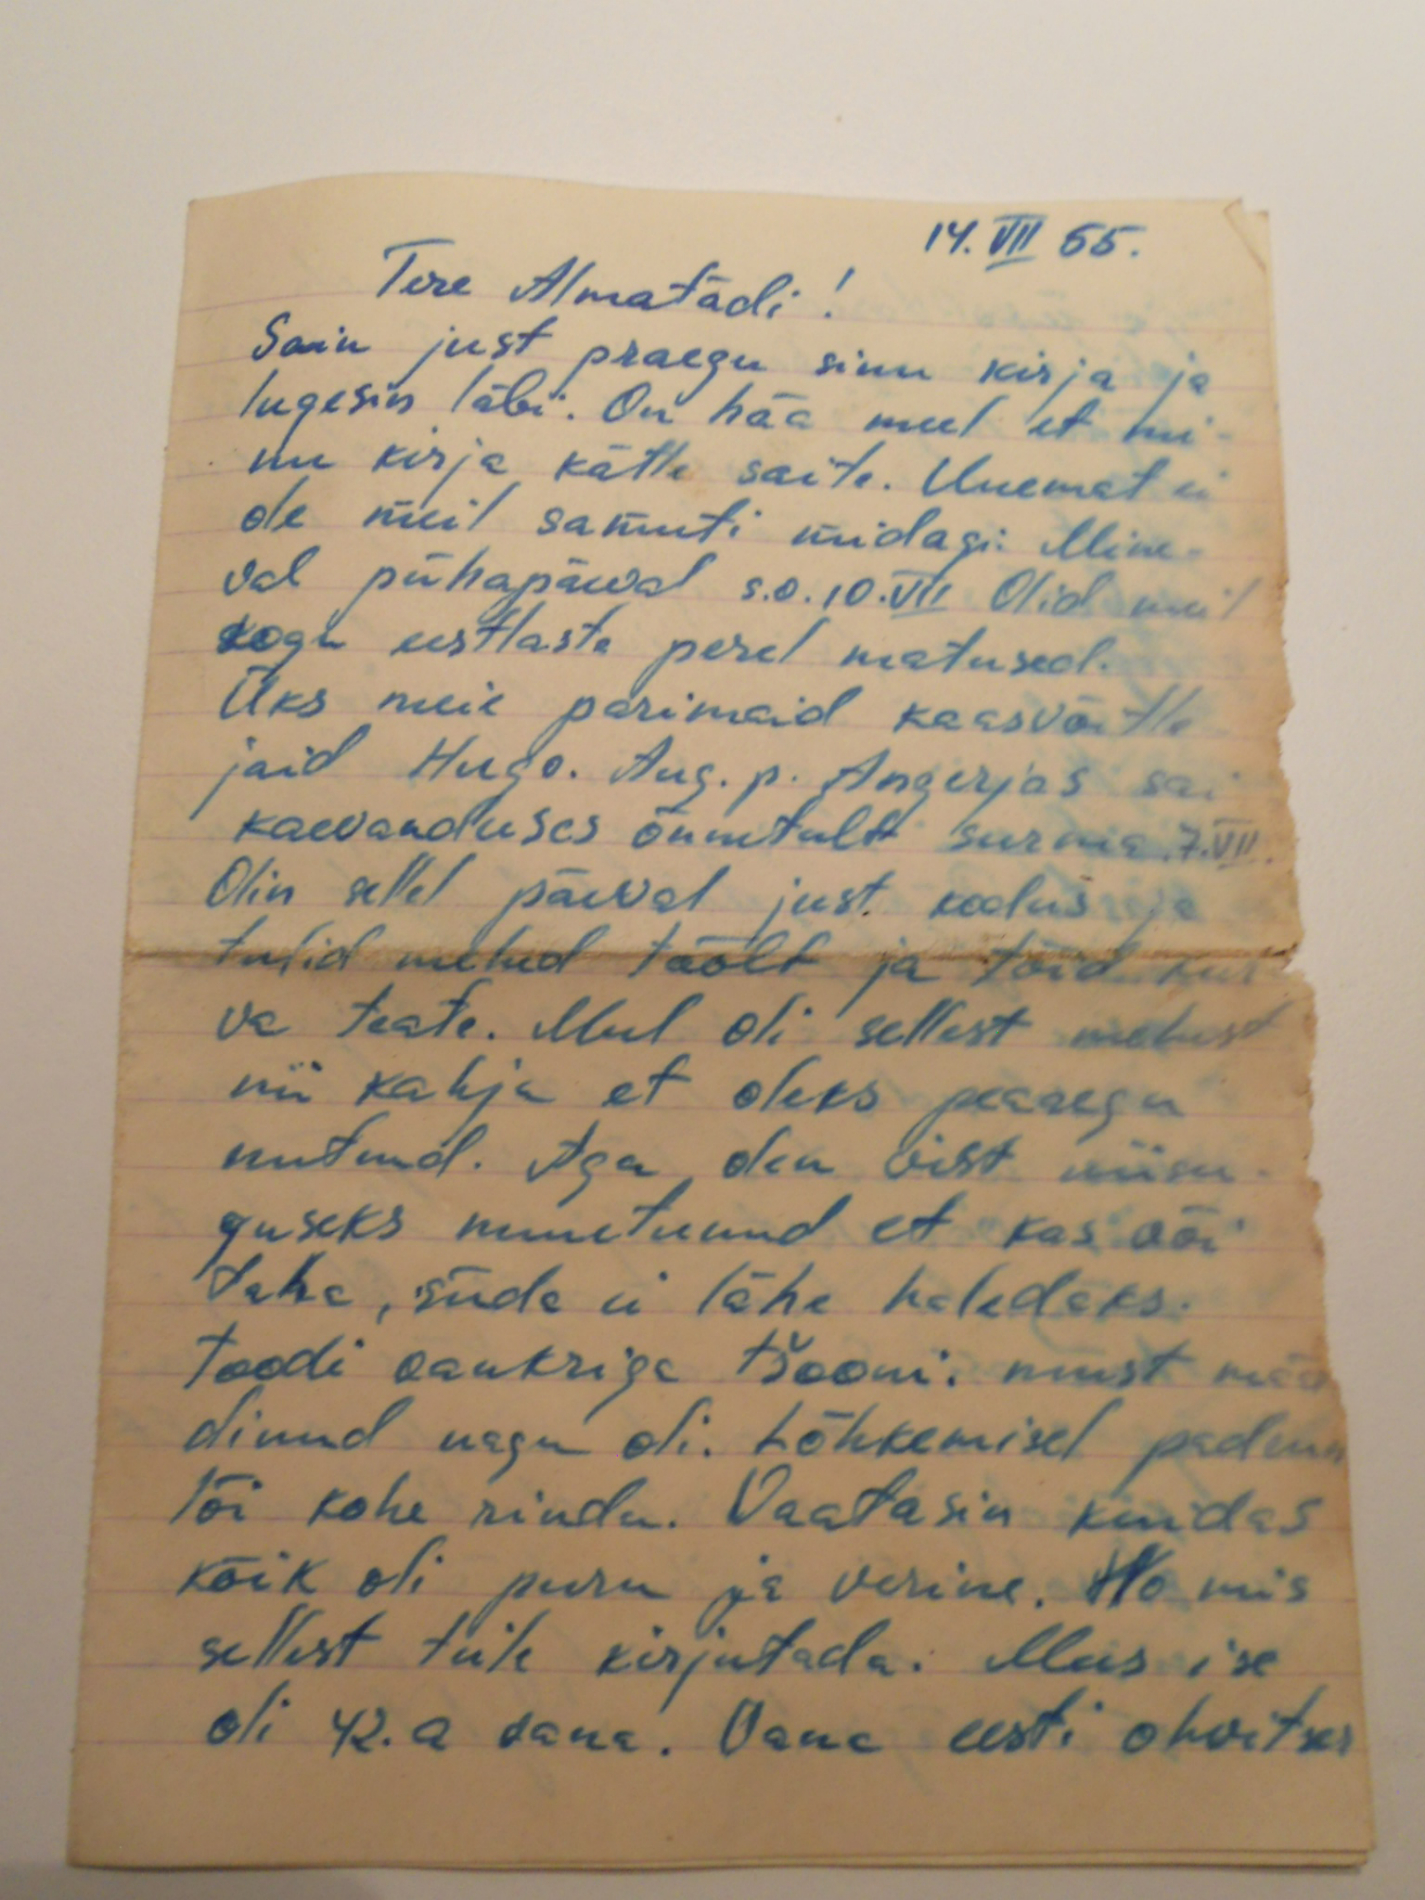 14. VII 55.
Tere Almatädi!
Sain just praegu sinu kirja ja
lugesin läbi. On hää meel et mi-
nu kirja kätte saite. Uuemat ei
ole meil samuti midagi. Mine-
val pühapäeval s.o. 10. VII Olid meil
kogu eestlaste perel matused.
Üks meie parimaid kaasvõitle
jaid Hugo. Aug. p. Angerjas sai
kaevanduses õnnetult surma. 7. VII.
Olin sellel päeval just kodus ja
tulid mehed töölt ja tõid kur
va teate. Mul oli sellest mehest
nii kahju et oleks peaaegu
nutnud. Aga olen vist niisu-
guseks muutunud et kas või
taha, süda ei lähe haledaks.
Toodi vankriga tsooni. must mää
dinud nagu oli. Lõhkemisel
lõi kohe rindu. Vaatasin kuidas
kõik oli puru ja verine. No mis
sellest teile kirjutada. Mees ise
oli 42. a vana. Vana eesti ohvitser